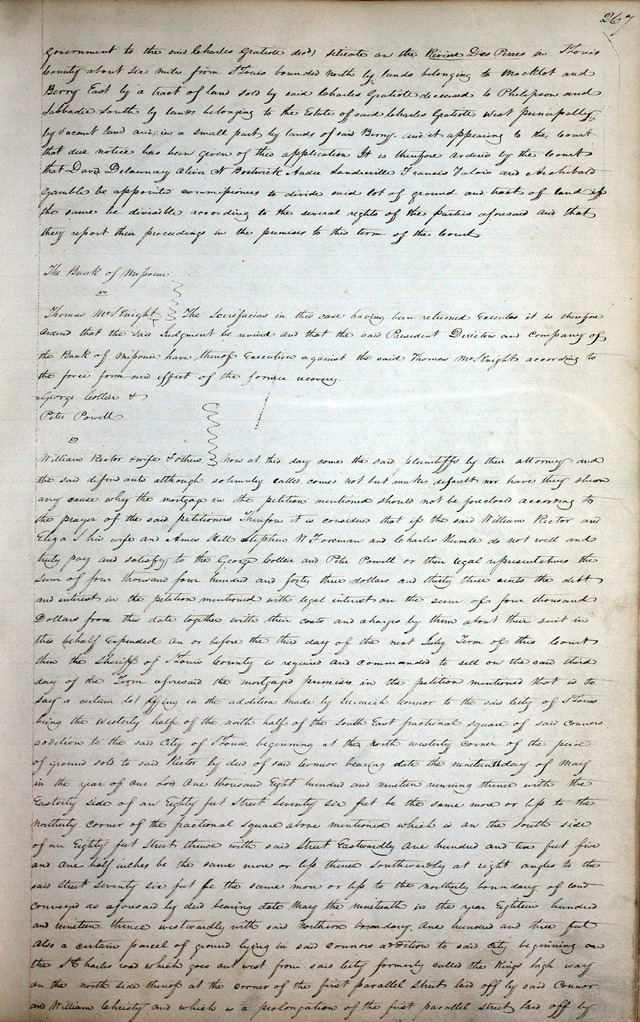 267
Government to the said Charles Gratiote decd situate on the Riviere Des Peres in St Louis
County about six miles from St Louis bounded north by lands belonging to Macklot and
Berry East by a tract of land sold by said Charles Gratiote deceased to Philipson and
Labbadie South by lands belonging to the Estate of said Charles Gratiote west principally
by vacant land and in a small part by lands of said Berry. and it appearing to the Court
that due notice has been given of this application It is therefore ordered by the Court
that David Delaunay Alexr H Bostwick Andre Landreville Francis Valois and Archibald
Gamble be appointed commissioners to divide said lot of ground and tract of land if
the same be divisible according to the several rights of the parties aforesaid and that
they report their proceedings in the premises to this term of the Court
The Bank of Missouri
vs
Thomas McKnight The Scirefacias in this case having been returned Executed it is therefore
ordered that the said Judgment be revived and that the said President Directors and Company of
the Bank of Missouri have thereof Execution against the said Thomas McKnight according to
the force form and effect of the former recovery.
George Collier &
Peter Powell
vs
William Rector & wife & others Now at this day come the said plaintiffs by their attorney and
the said defendants although solemnly called comes not but make default nor have they shewn
any cause why the mortgage in the petition mentioned should not be foreclosed according to
the prayer of the said petitioners Therefore it is considered that if the said William Rector and
Eliza his wife and Amos Hill Stephen W Foreman and Charles Keemle do not well and
truly pay and satisfy to the George Collier and Peter Powell or their legal representatives the
sum of four thousand four hundred and forty three dollars and thirty three cents the debt
and interest in the petition mentioned with legal interest on the sum of four thousand
Dollars from this date together with their costs and charges by them about their suit in
this behalf Expended on or before the third day of the next July Term of this Court
then the Sheriff of St Louis County is required and commanded to sell on the said third
day of the Term aforesaid the mortgaged premises in the petition mentioned that is to
say a certain lot lying in the addition made by Jeremiah Connor to the said City of St Louis
being the westerly half of the north half of the South East fractional square of said Connors
addition to the said City of St Louis, beginning at the North westerly corner of the piece
of ground sold to said Rector by deed of said Connor bearing date the nineteenth day of May
in the year of our Lord One thousand Eight hundred and nineteen running thence with the
Easterly side of an Eighty feet Street Seventy six feet be the same more or less to the
northerly corner of the fractional square above mentioned which is on the south side
of an Eighty feet Street thence with said Street Eastwardly one hundred and ten feet five
and one half inches be the same more or less thence southwardly at right angles to the
said street seventy six feet be the same more or less to the northerly boundary of land
conveyed as aforesaid by deed bearing date May the nineteenth in the year Eighteen hundred
and nineteen thence westwardly with said Northern boundary. One hundred and three feet
Also a certain parcel of ground lying in said Connors addition to said City beginning on
the St Charles road which goes out west from said City formerly called the Kings high way
on the north side thereof at the corner of the first parallel street laid off by said Connor
and William Christy and which is a prolongation of the first parallel street laid off by